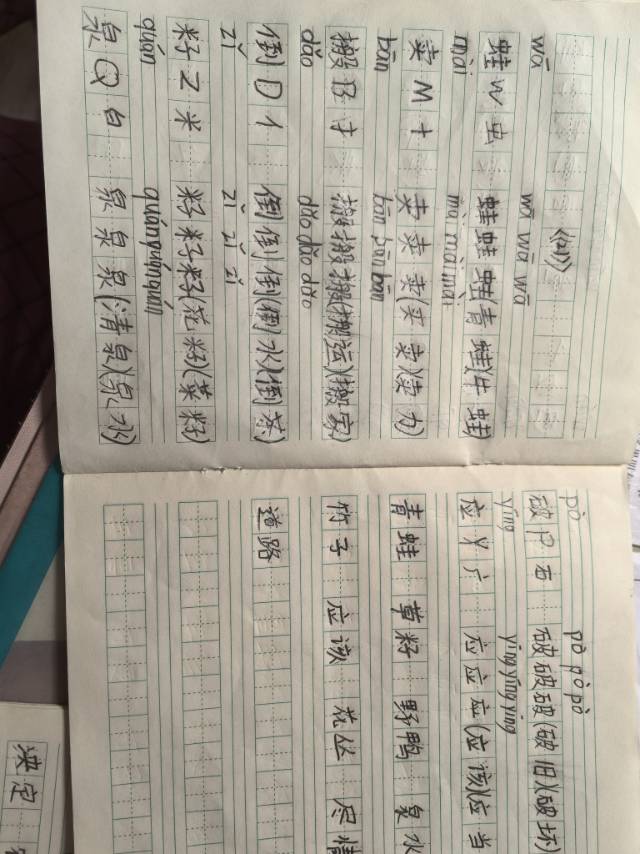 《21》
wā wā wā wā
蛙 W 虫 蛙蛙蛙(青蛙)(牛蛙)
mài mài mài mài
卖 M 十 卖卖卖(买卖)(卖力)
bān bān bān bān
搬 B 扌 搬搬搬(搬运)(搬家)
dǎo dǎo dǎo dǎo
倒 D 亻 倒倒倒(倒水)(倒茶)
zǐ zǐ zǐ zǐ
籽 Z 米 籽籽籽(花籽)(菜籽)
quán quán quán quán
泉 Q 白 泉泉泉(清泉)(泉水)
pò pò pò pò
破 P 石 破破破(破旧)(破坏)
yīng yīng yīng yīng
应 Y 广 应应应(应该)(应当
青蛙 草籽 野鸭 泉水
竹子 应该 花丛 尽情
道路
决定